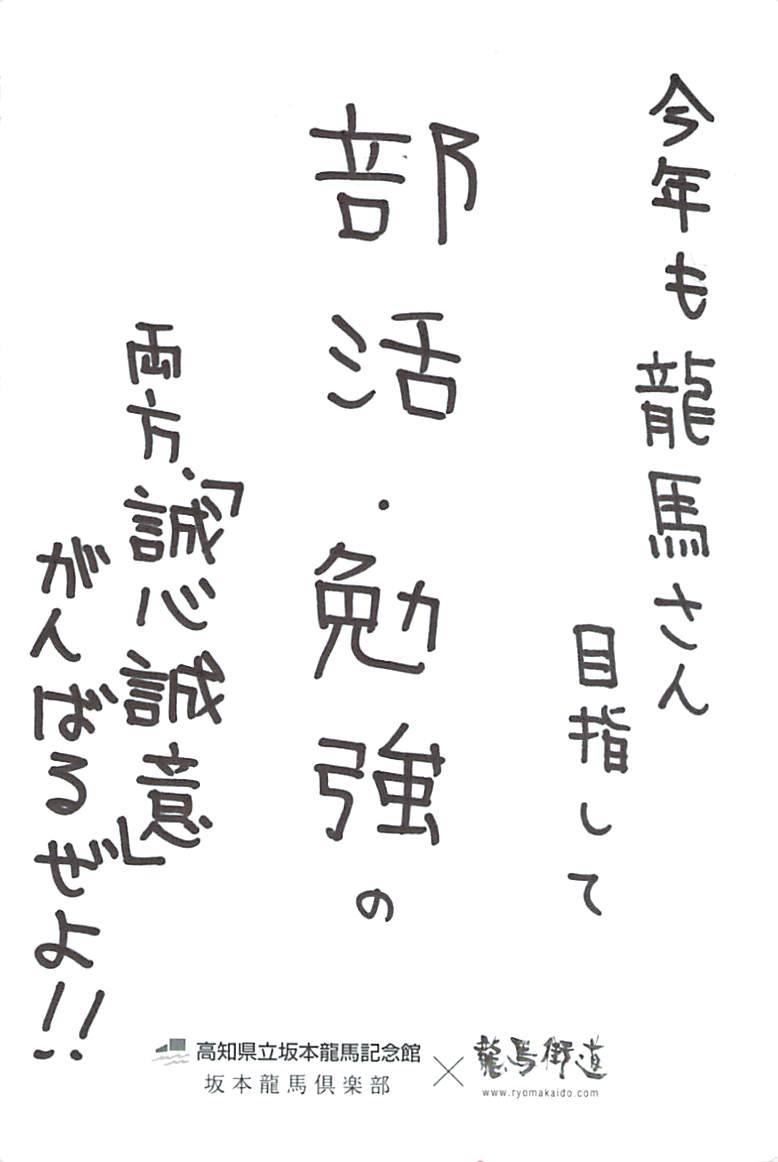 今年も龍馬さん
目指して
部活・勉強の
両方、「誠心誠意」
がんばるぜよ!!
高知県立坂本龍馬記念館
坂本龍馬倶楽部
×
龍馬街道
www.ryomakaido.com